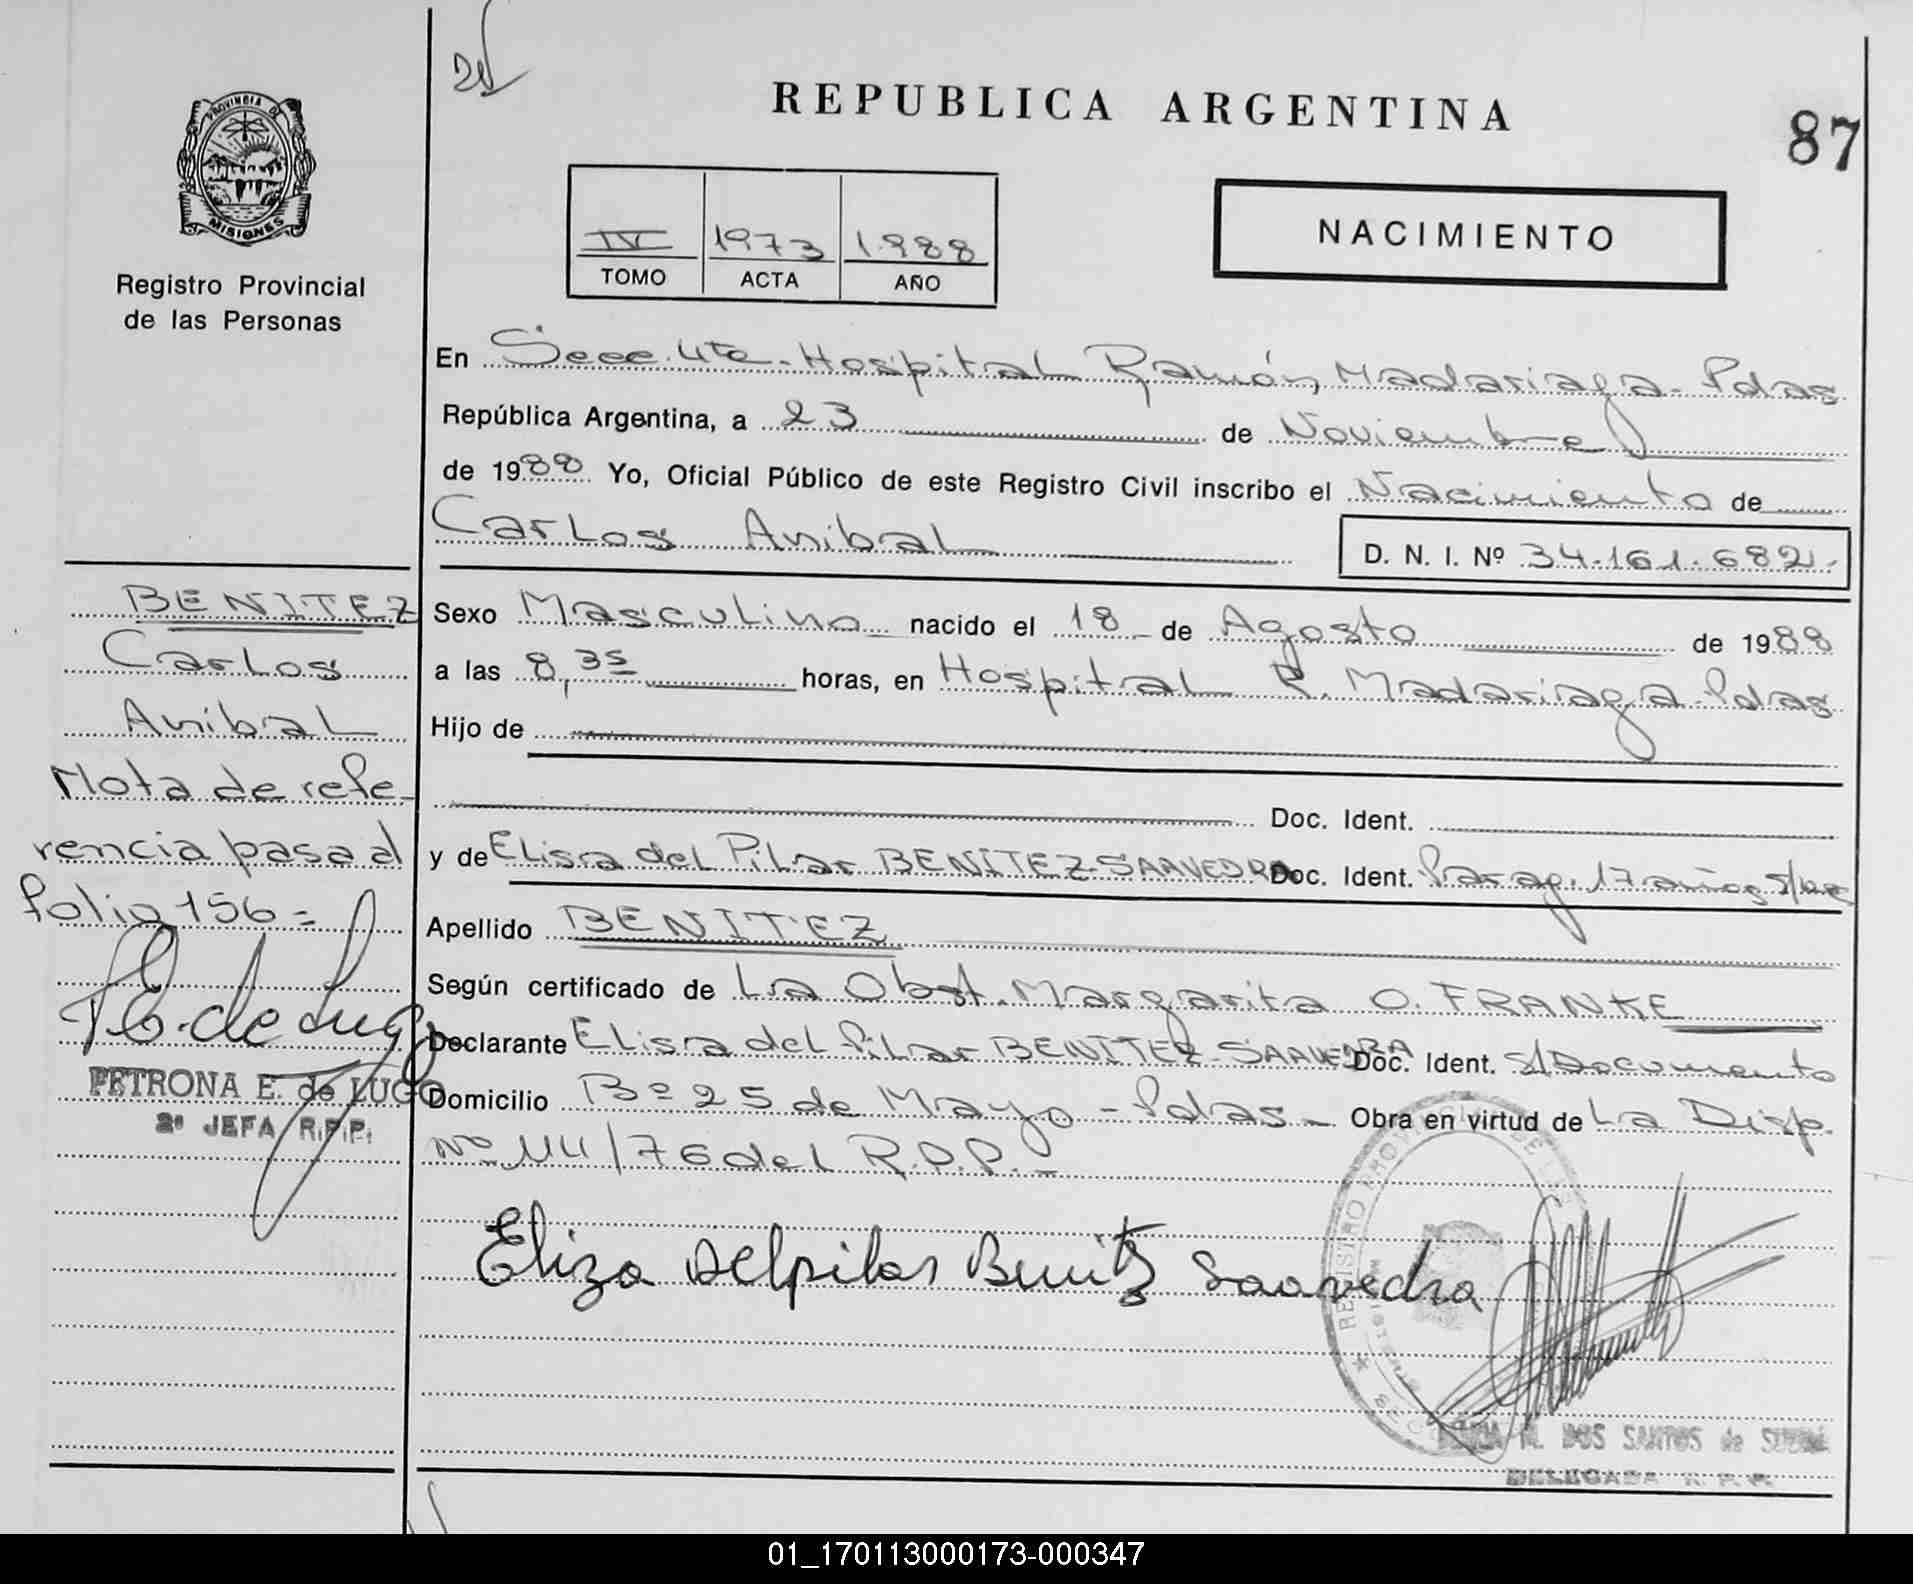 REPUBLICA ARGENTINA
87
PROVINCIA DE
MISIONES
Registro Provincial
de las Personas
IV 1973 1988
TOMO ACTA AÑO
NACIMIENTO
En Secc. 4ta. Hospital Ramón Madariaga - Pdas
República Argentina, a 23 de Noviembre
de 1988 Yo, Oficial Público de este Registro Civil inscribo el Nacimiento de
Carlos Anibal
D. N. I. Nº 34.161.682.
BENITEZ
Carlos
Anibal
Nota de refe-
rencia pasa al
folio 156=
P E. de Lugo
PETRONA E. de LUGO
2ª JEFA R.P.P.
Sexo Masculino nacido el 18 de Agosto de 1988
a las 8,35 horas, en Hospital R. Madariaga - Pdas
Hijo de
Doc. Ident.
y de Elisa del Pilar BENITEZ SAAVEDRA Doc. Ident. Parag. 17 años s/
Apellido BENITEZ
Según certificado de La Obst. Margarita O. FRANKE
Declarante Elisa del Pilar BENITEZ-SAAVEDRA Doc. Ident. s/Documento
Domicilio Bº 25 de Mayo - Pdas - Obra en virtud de La Disp.
Nº 114/76 del R.P.P. -
Eliza Delpilar Benitz Saavedra
REGISTRO PROVINCIAL DE
M. DOS SANTOS de
DELEGADA R. P. P.
01_170113000173-000347